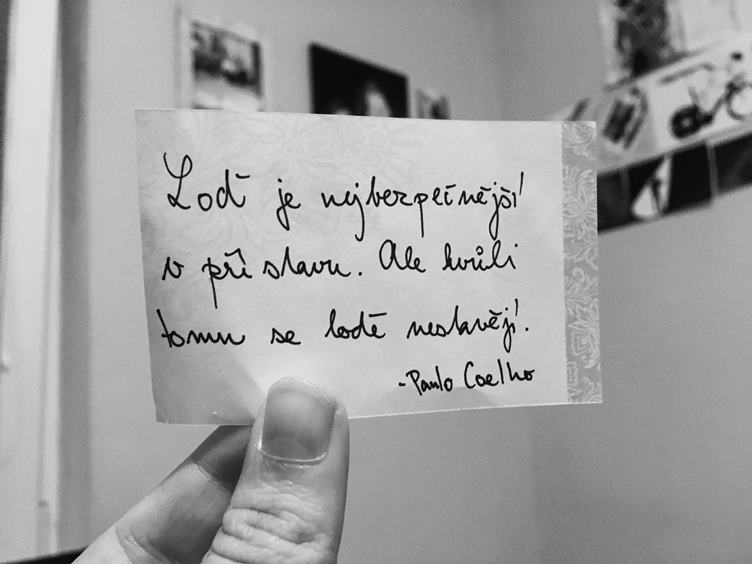 Loď je nejbezpečnější
v přístavu. Ale kvůli
tomu se lodě nestavějí.
-Paulo Coelho